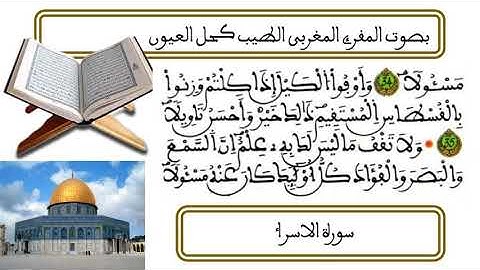 بصوت المقرئ المغربي الطيب كحل العيون
مَسْـُٔولًا 34 وَأَوْفُوا۟ اُ۬لْكَيْلَ إِذَا كِلْتُمْ وَزِنُوا۟
بِالْقُسْطَاسِ اِ۬لْمُسْتَقِيمِ ذَٰلِكَ خَيْرٌ وَأَحْسَنُ تَأْوِيلًا
35 وَلَا تَقْفُ مَا لَيْسَ لَكَ بِهِۦ عِلْمٌ اِنَّ اَ۬لسَّمْعَ
وَالْبَصَرَ وَالْفُؤَادَ كُلُّ أُو۟لَٰٓئِكَ كَانَ عَنْهُ مَسْـُٔولًا
سورة الاسراء